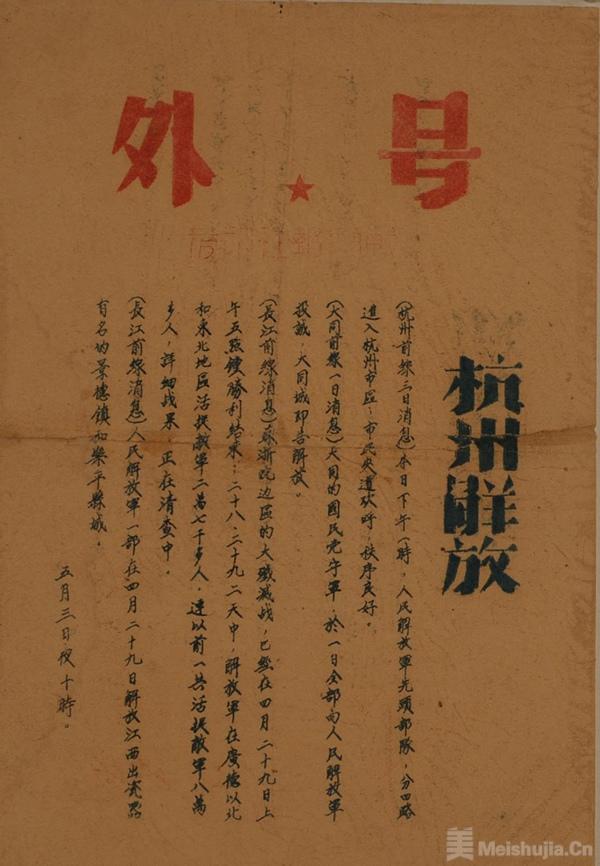 号★外
杭州解放
(杭州前線三日消息)本日下午一時，人民解放軍先頭部隊，分四路
進入杭州市區；市民夹道欢呼，秩序良好。
(大同前線一日消息)大同的國民党守軍，於一日全部向人民解放軍
投誠，大同城即告解放。
(長江前線消息)蘇浙皖边區的大殲滅战，已然在四月二十九日上
午五點鐘勝利結束；二十八、二十九二天中，解放軍在廣德以北
和東北地區活捉敵軍二萬七千多人，連以前一共活捉敵軍八萬
多人，詳細战果，正在清查中。
(長江前線消息)人民解放軍一部在四月二十九日解放江西出瓷器
有名的景德鎮和樂平縣城。
五月三日夜十時。
美 Meishujia.Cn